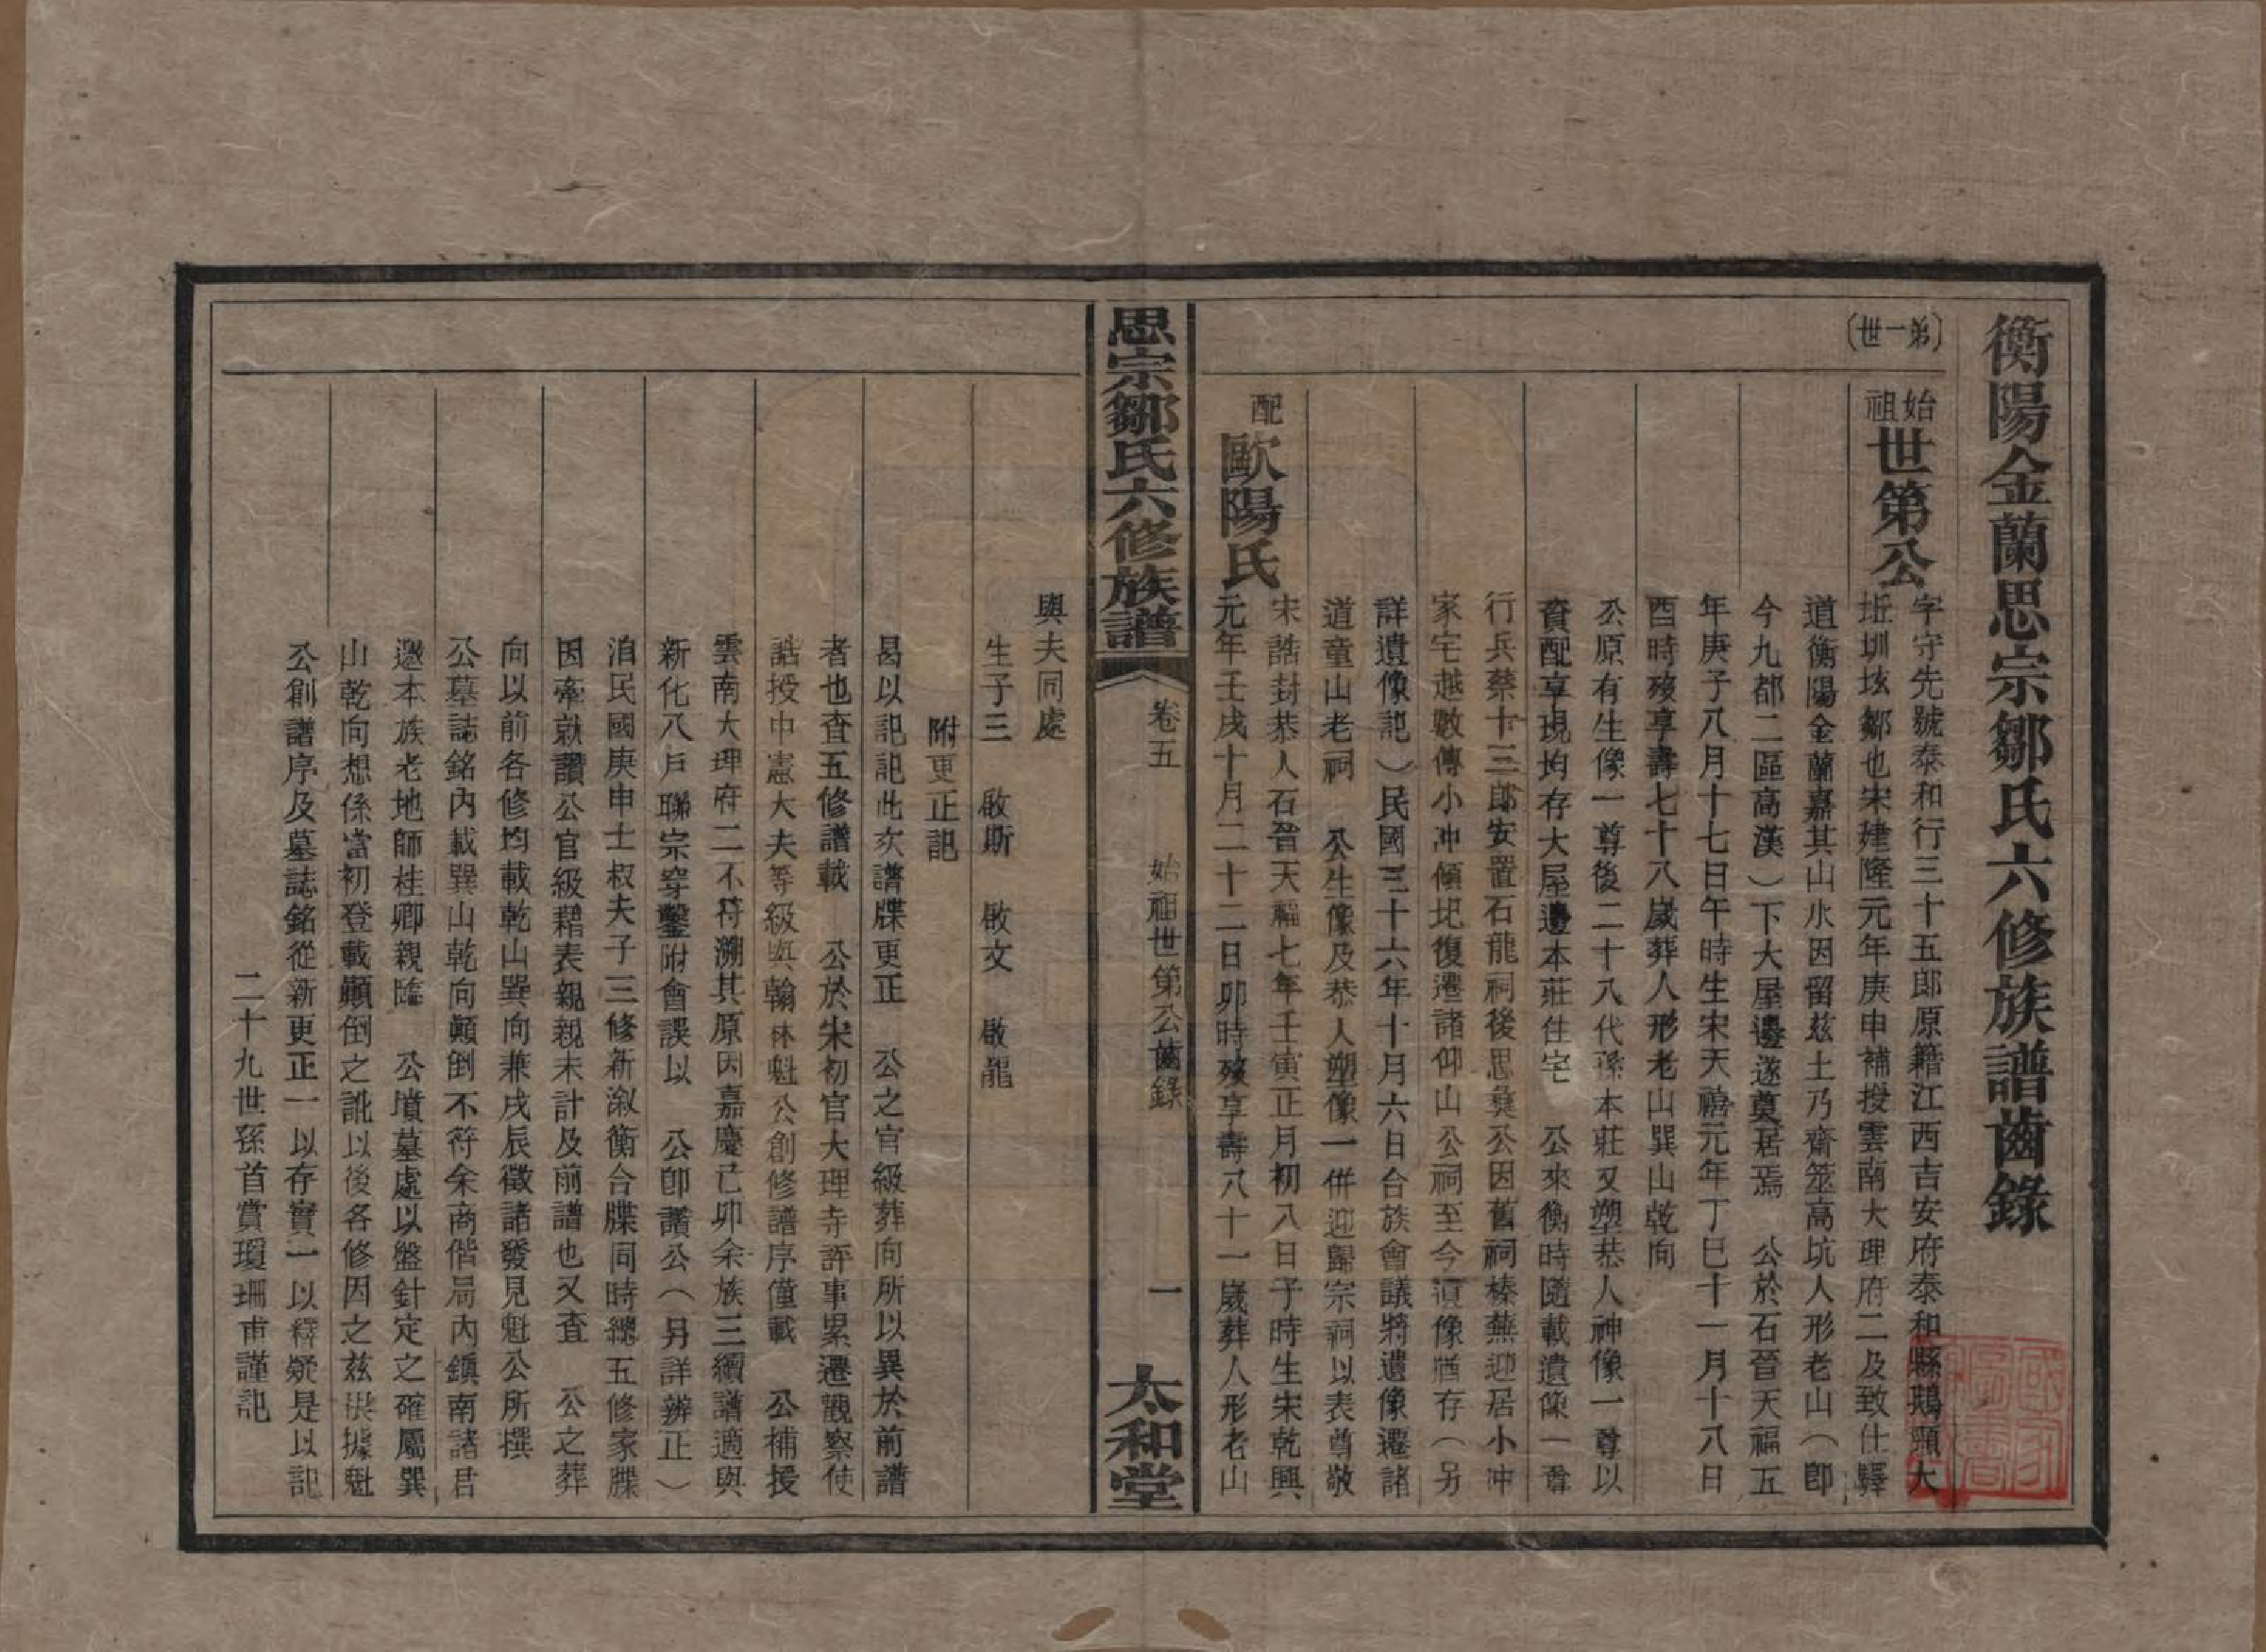 衡陽金蘭思宗鄒氏六修族譜齒錄
(第一世)
始祖
世第公
字守先號泰和行三十五郎原籍江西吉安府泰和縣鵝頸大
坵圳垓鄒也宋建隆元年庚申補授雲南大理府二及致仕驛
道衡陽金蘭嘉其山水因留玆土乃齋筮高坑人形老山(卽
今九都二區高漢)下大屋邊遂奠居焉 公於石晉天福五
年庚子八月十七日午時生宋天禧元年丁巳十一月十八日
酉時歿享壽七十八歲葬人形老山巽山乾向
公原有生像一尊後二十八代孫本莊又塑恭人神像一尊以
資配享現均存大屋邊本莊住宅 公來衡時隨載遺像一尊
行兵蔡十三郎安置石龍祠後思彝公因舊祠榛蕪迎居小冲
家宅越數傳小冲傾圮復遷諸仰山公祠至今眞像猶存(另
詳遺像記)民國三十六年十月六日合族會議將遺像遷諸
道童山老祠 公生像及恭人塑像一併迎歸宗祠以表尊敬
配
歐陽氏
宋誥封恭人石晉天福七年壬寅正月初八日子時生宋乾興
元年壬戌十月二十二日卯時歿享壽八十一歲葬人形老山
思宗鄒氏六修族譜
卷五
始祖世第公齒錄
一
太和堂
與夫同處
生子三 啟斯 啟文 啟龍
附更正記
曷以記記此次譜牒更正 公之官級葬向所以異於前譜
者也査五修譜載 公於宋初官大理寺評事累遷觀察使
誥授中憲大夫等級與翰林魁公創修譜序僅載 公補授
雲南大理府二不符溯其原因嘉慶己卯余族三續譜適與
新化八戶聯宗穿鑿附會誤以 公卽讚公(另詳辨正)
洎民國庚申士椒夫子三修新漵衡合牒同時總五修家牒
因牽就讚公官級藉表親親未計及前譜也又査 公之葬
向以前各修均載乾山巽向兼戌辰徵諸發見魁公所撰
公墓誌銘內載巽山乾向顚倒不符余商偕局內鎭南諸君
邀本族老地師桂卿親臨 公墳墓處以盤針定之確屬巽
山乾向想係當初登載顚倒之訛以後各修因之玆洪據魁
公創譜序及墓誌銘從新更正一以存實一以釋疑是以記
二十九世孫首賞瓊珊甫謹記